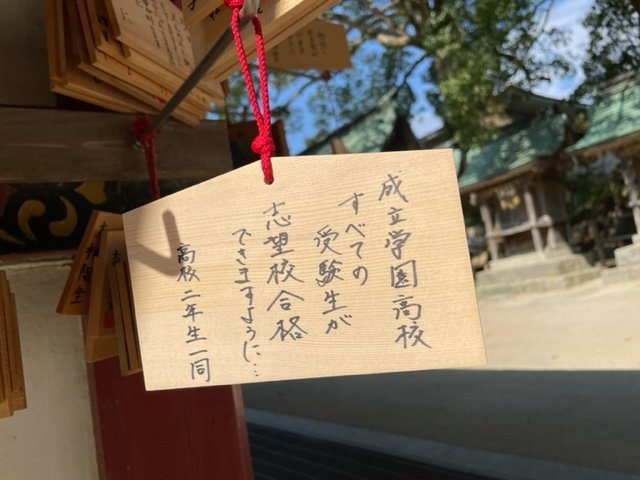 成立学園高校
すべての
受験生が
志望校合格
できますように…
高校二年生一同